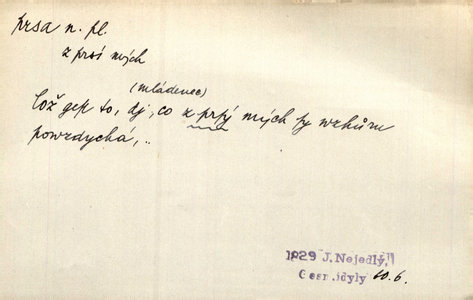 prsa n. pl.
z prsí mých
(mládenec)
Což gest to, dj, co z prsý mých sy wzhůru
powzdychá, ..
1829 J. Nejedlý,
Gesn. idyly 60.6.